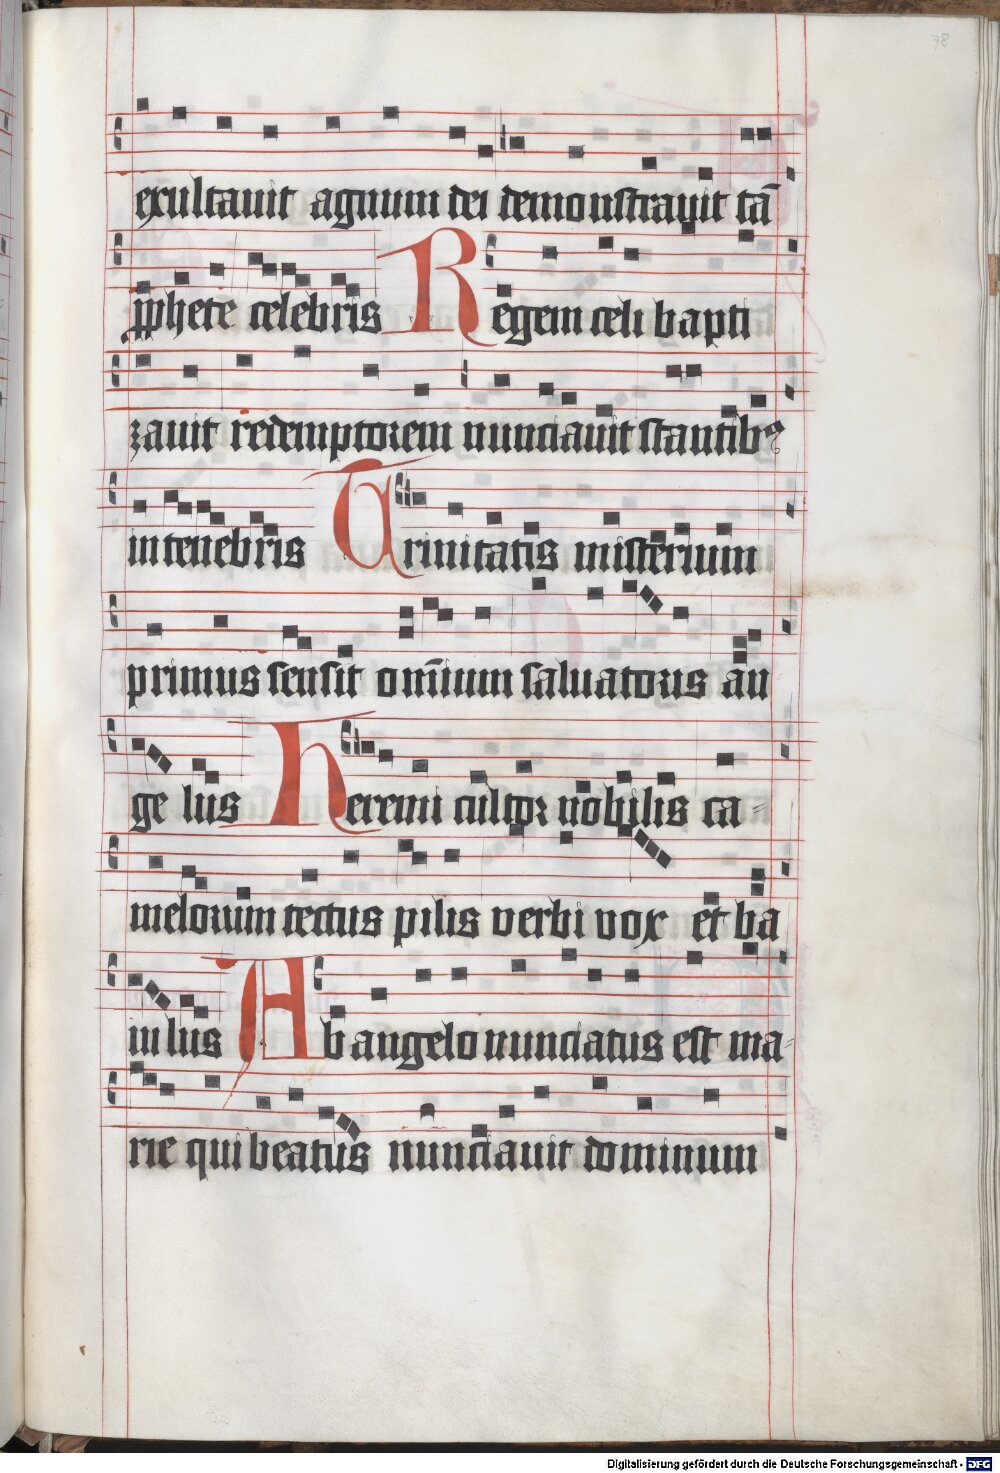 78
exultauit agnum dei demonstrauit tā
ꝓphete celebris Regem celi bapti
zauit redemptorem nunciauit stantibꝰ
in tenebris Trinitatis misterium
primus sensit om̄ium saluatoris an
ge lus heremi cultor nobilis ca⸗
melorum tectus pilis verbi vox et ba
iu lus Ab angelo nunciatus est ma⸗
rie qui beatus nunciauit dominum
Digitalisierung gefördert durch die Deutsche Forschungsgemeinschaft - DFG